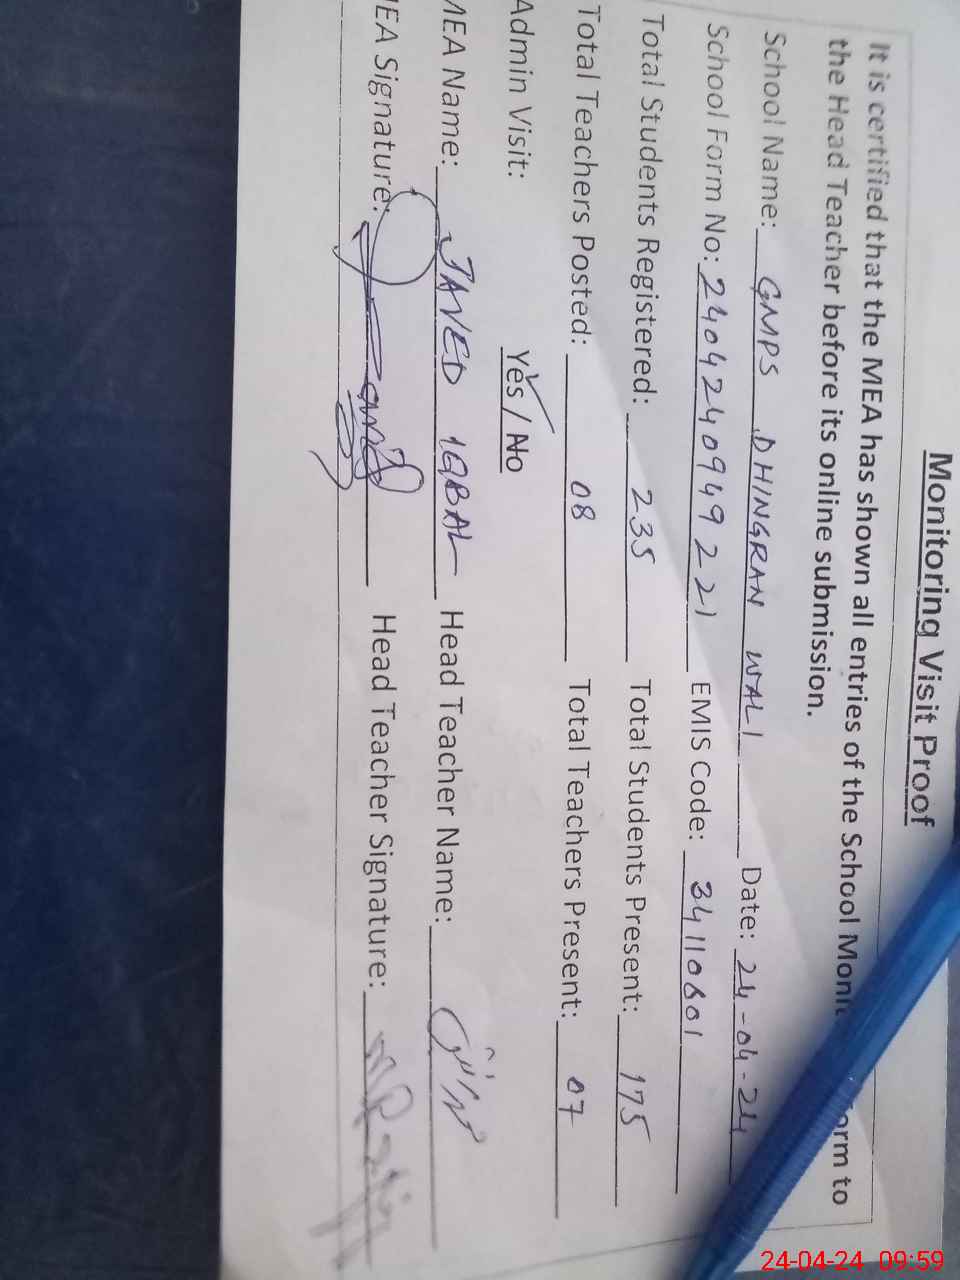 Monitoring Visit Proof
It is certified that the MEA has shown all entries of the School Monit orm to
the Head Teacher before its online submission.
School Name: GMPS DHINGRAN WALI Date: 24-04-24
School Form No: 24042409449221 EMIS Code: 34110601
Total Students Registered: 235 Total Students Present: 175
Total Teachers Posted: 08 Total Teachers Present: 07
Admin Visit: Yes / No
MEA Name: JAVED IQBAL Head Teacher Name:
MEA Signature: Head Teacher Signature:
24-04-24 09:59